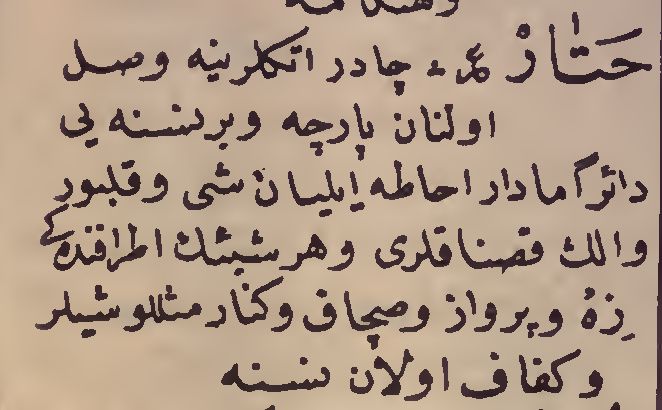 حَتَارْ چادر اتكلرينه وصل
اولنان پارچه وبرنسنه يى
دائرًا مادار احاطه ايليان شى وقلبور
والك قصناقلرى وهر شيئك اطرافنده كى
زهٔ وپرواز وصچاق وكنار مثللو شيلر
وكفاف اولان نسنه